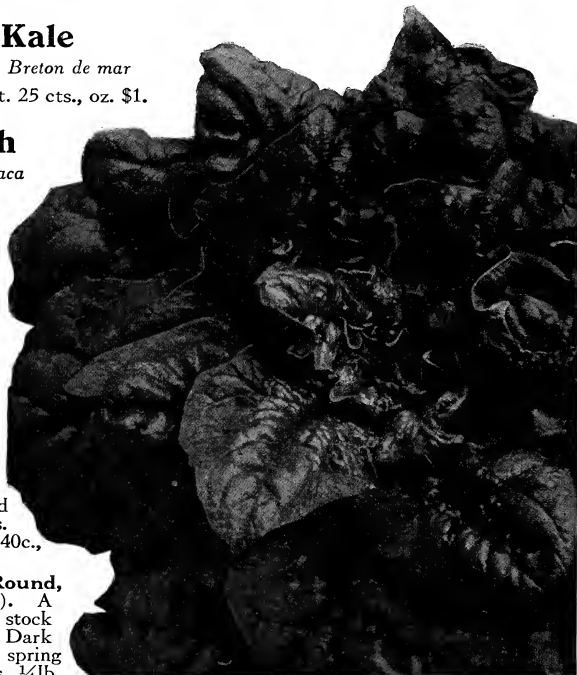 Kale
Breton de mar
t. 25 cts., oz. $1.
h
aca
d
s.
40c.,
Round,
). A
stock
Dark
spring
¼lb